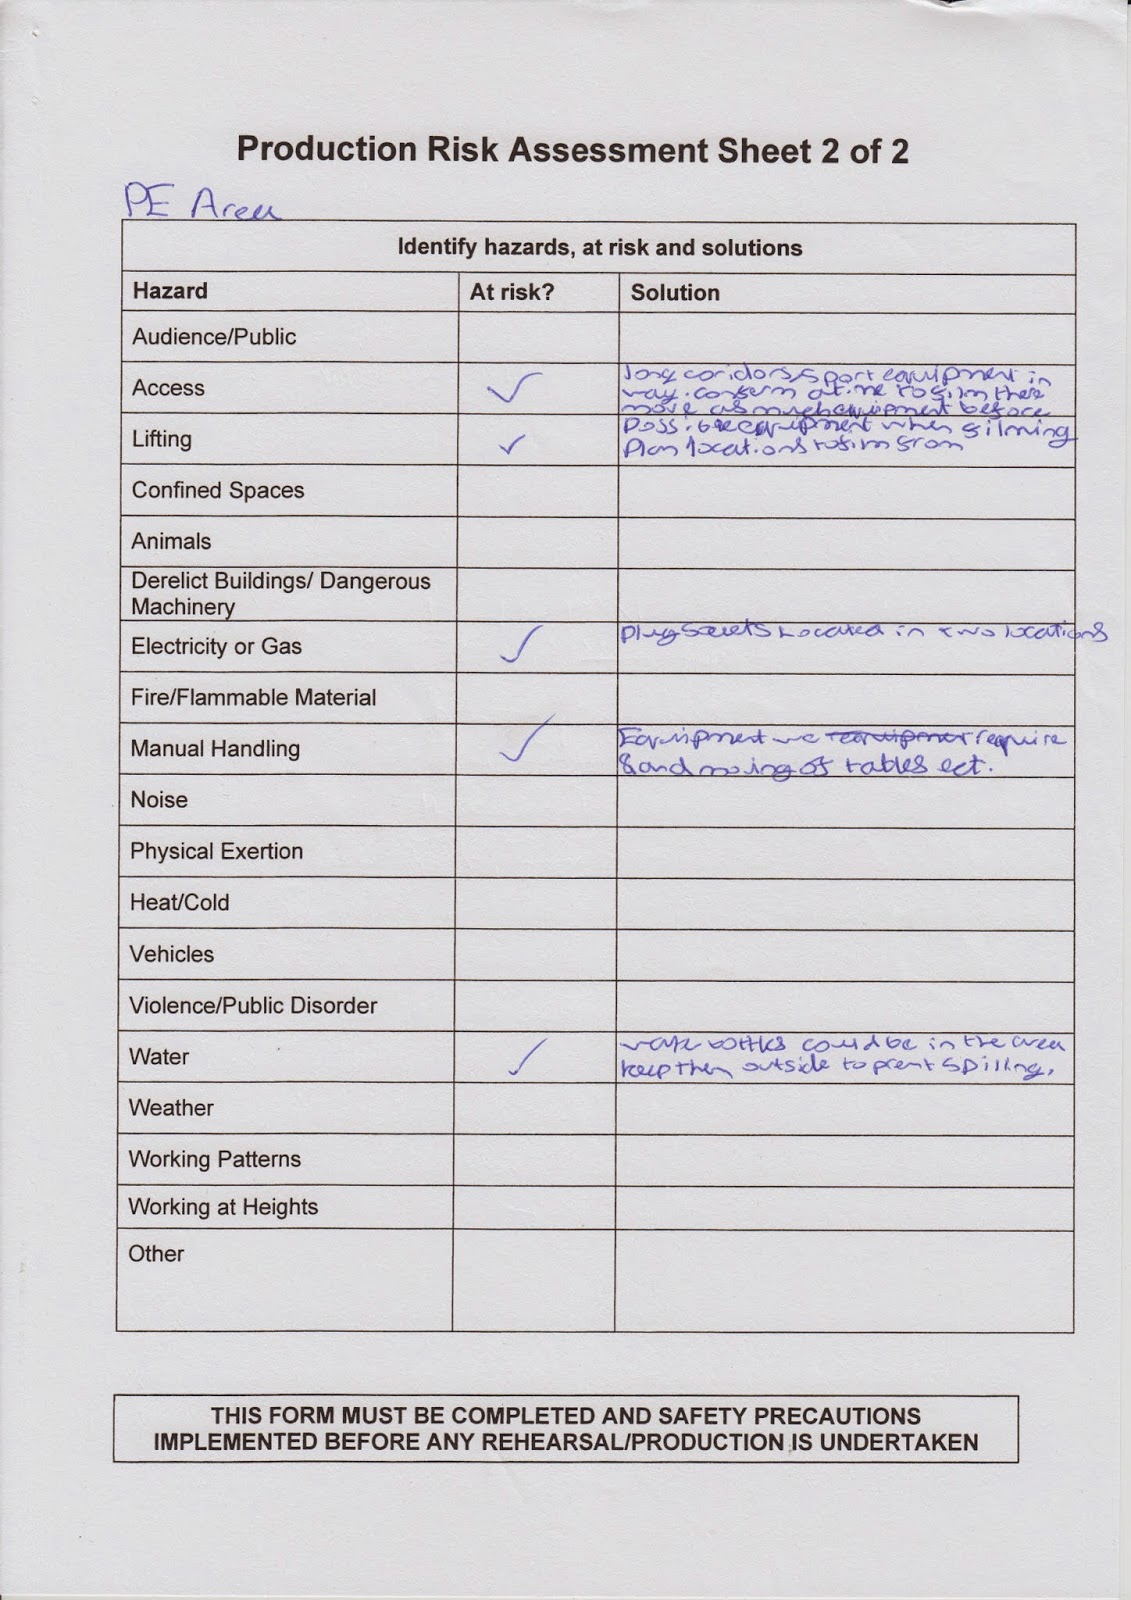 Production Risk Assessment Sheet 2 of 2
PE Area
Identify hazards, at risk and solutions
Hazard At risk? Solution
Audience/Public
Access ✓ long coridors, sport equipment in
way. confirm a time to film there
move as much equipment before
Lifting ✓ equipment when filming
Plan locations to film from
Confined Spaces
Animals
Derelict Buildings/ Dangerous
Machinery
Electricity or Gas ✓ Plug Located in two locations
Fire/Flammable Material
Manual Handling ✓ Equipment we require
and of tables ect.
Noise
Physical Exertion
Heat/Cold
Vehicles
Violence/Public Disorder
Water ✓ bottles could be in the area
keep them outside to spilling.
Weather
Working Patterns
Working at Heights
Other
THIS FORM MUST BE COMPLETED AND SAFETY PRECAUTIONS
IMPLEMENTED BEFORE ANY REHEARSAL/PRODUCTION IS UNDERTAKEN